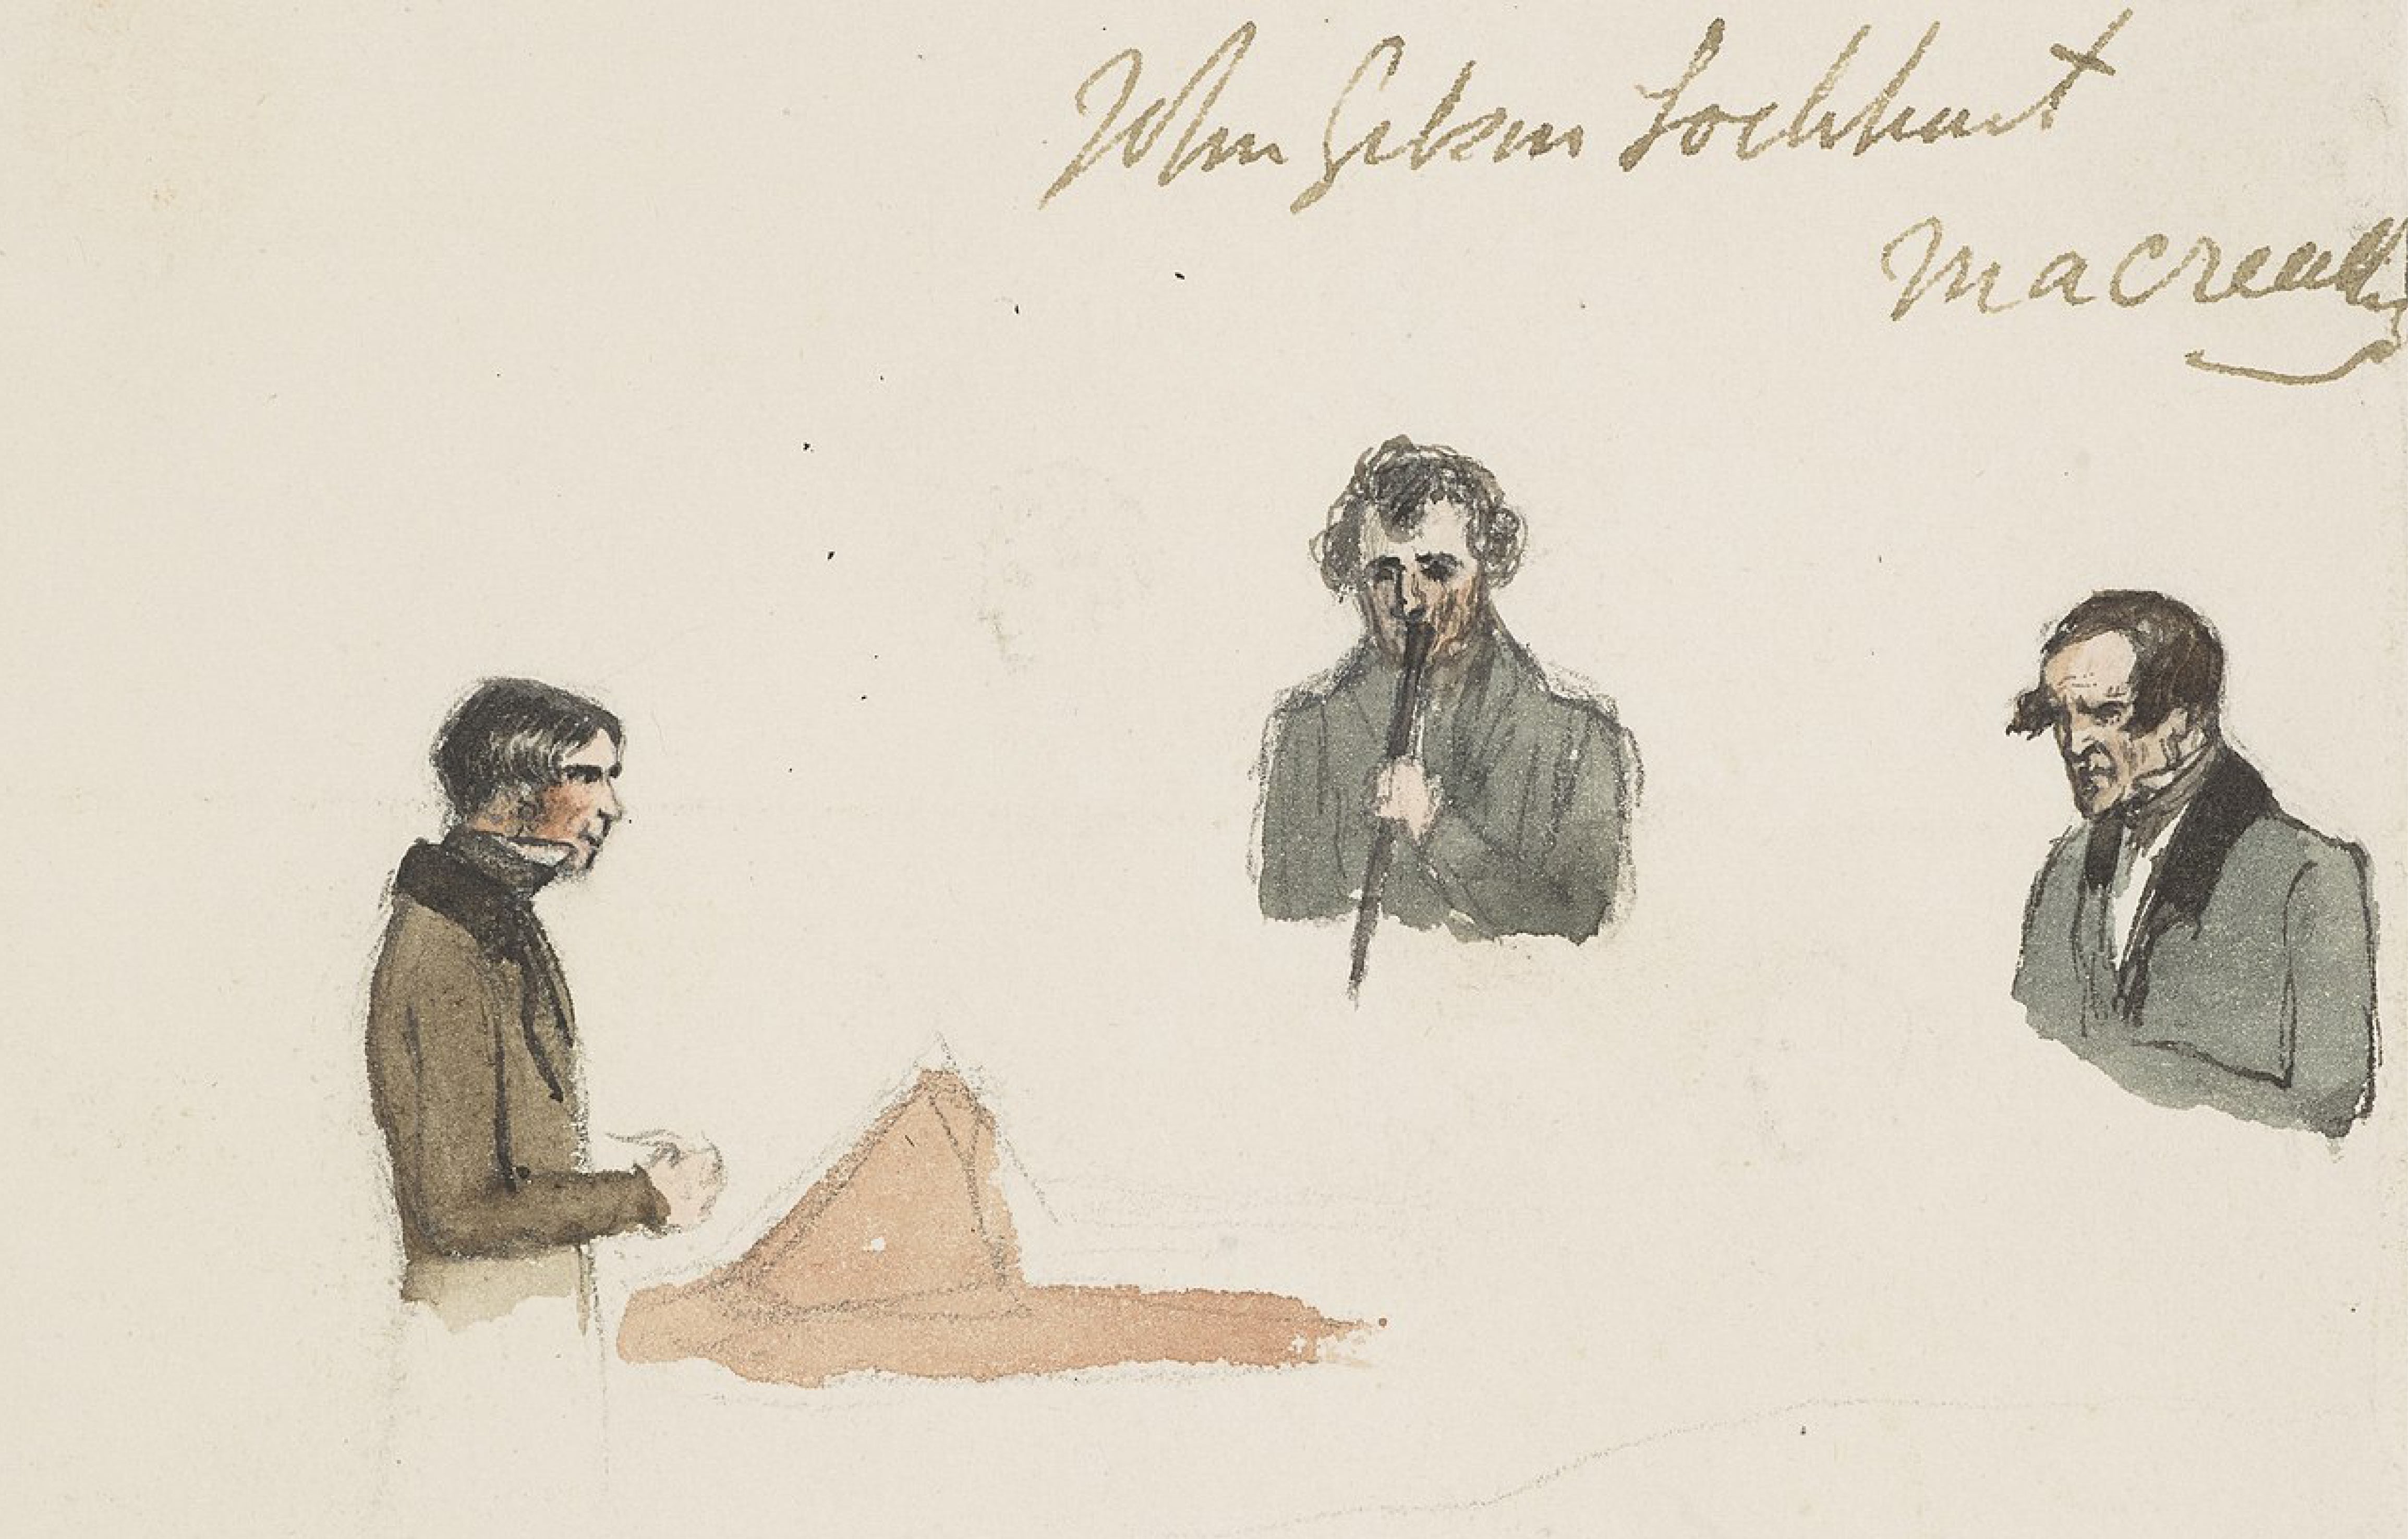 John Gibson Lockhart
Macready